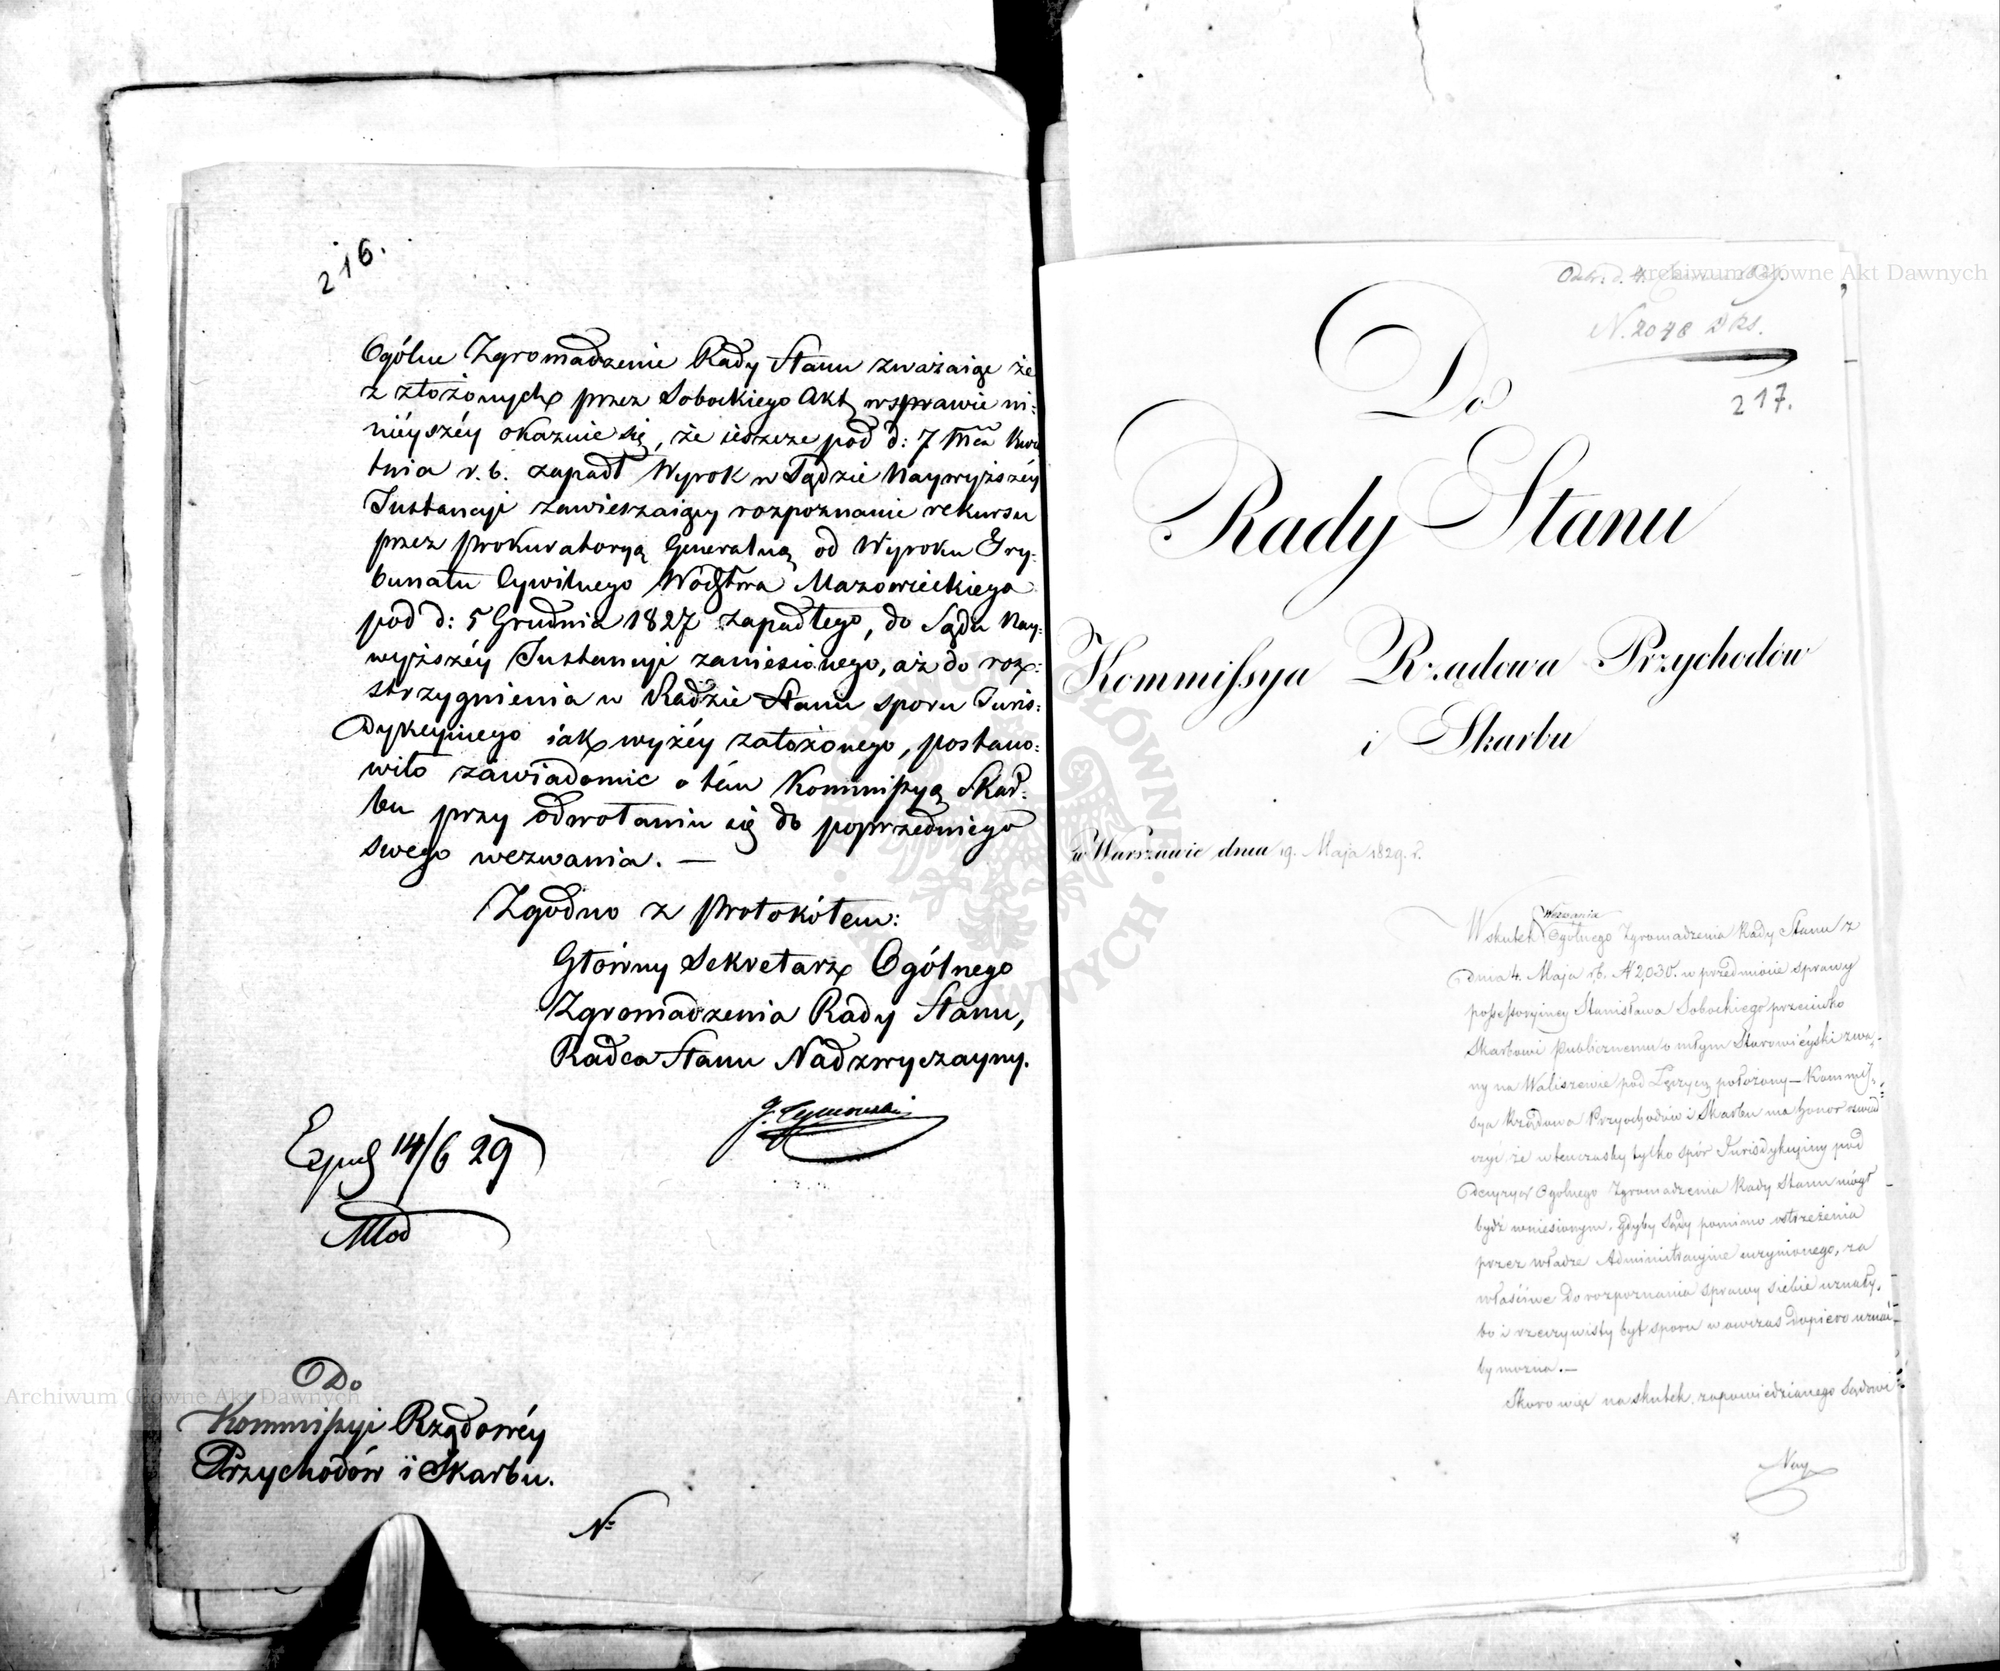 216.
Ogólne Zgromadzenie Rady Stanu zważaiąc że
z złożonych przez Sobockiego Akt, w sprawie ni-
nieyszéy okazuie się, że ieszcze pod d: 7 Mca Kwie
tnia r. b. zapadł Wyrok w Sądzie Naywyższéy
Instancyi zawieszaiący rozpoznanie rekursu
przez Prokuratoryą Generalną od Wyroku Try-
bunału Cywilnego Wodztwa Mazowieckiego
pod d: 5 Grudnia 1827 zapadłego, do Sądu Nay-
wyższéy Instancyi zaniesionego, aż do roz-
strzygnienia w Radzie Stanu sporu Juris-
dykcyinego iak wyżéy założonego, postano-
wiło zawiadomić o tém Kommissyą Skar-
bu przy odwołaniu się do poprzedniego
swego wezwania. —
Zgodno z Protokółem:
Główny Sekretarz Ogólnego
Zgromadzenia Rady Stanu,
Radca Stanu Nadzwyczayny.
14/6 29
Do
Kommissyi Rządowéy
Przychodów i Skarbu.
N=
Archiwum Główne Akt Dawnych
Archiwum Główne Akt Dawnych
N. 2048
217.
Do
Rady Stanu
Kommissya Rządowa Przychodów
i Skarbu
w Warszawie dnia 19. Maja 1829. r.
Wezwania
W skutek Ogólnego Zgromadzenia Rady Stanu z
dnia 4. Maja r. b. N 2,030. w przedmiocie sprawy
possessoryiney Stanisława Sobockiego przeciwko
Skarbowi Publicznemu o młyn Starowiéyski zwa-
ny na Waliszewie pod Łęczycą położony — Kommis-
sya Rządowa Przychodów i Skarbu ma honor oswiad
czyć że w tenczasby tylko spór Jurisdykcyiny pod
decyzyą Ogólnego Zgromadzenia Rady Stanu mógł
bydź wniesionym, gdyby Sądy pomimo ostrzeżenia
przez władze Administracyine uczynionego, za
właściwe do rozpoznania sprawy siebie uznały,
bo i rzeczywisty byt sporu w owczas dopiero uznać
by można. —
Skoro więc na skutek zapowiedzianego Sądowi
Nay